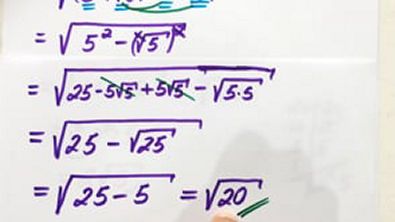 = √5² - (√5)²
= √25 - 5√5 + 5√5 - √5·5
= √25 - √25
= √25 - 5 = √20